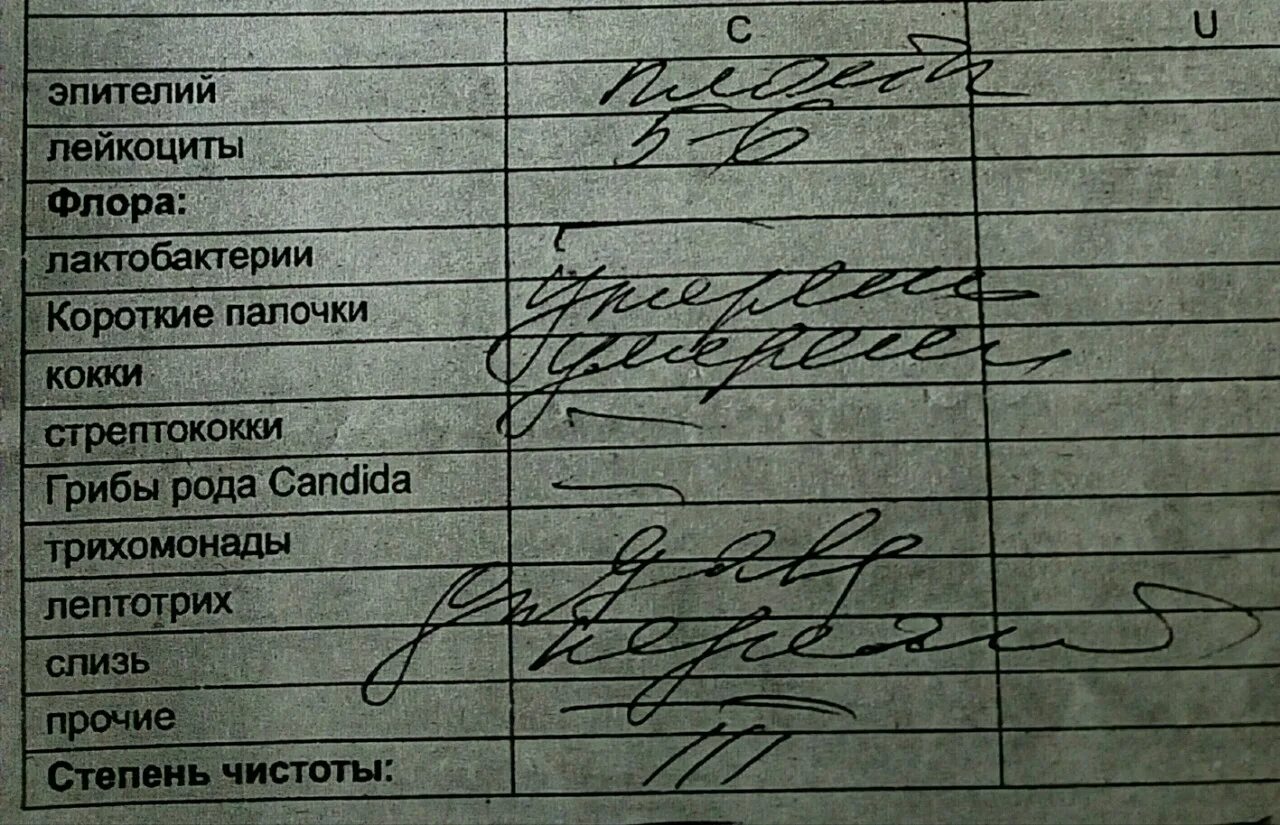 C U
эпителий плоск
лейкоциты 5-6
Флора:
лактобактерии —
Короткие палочки умерен
кокки умерен
стрептококки —
Грибы рода Candida —
трихомонады
лептотрих
слизь умерен
прочие —
Степень чистоты: III